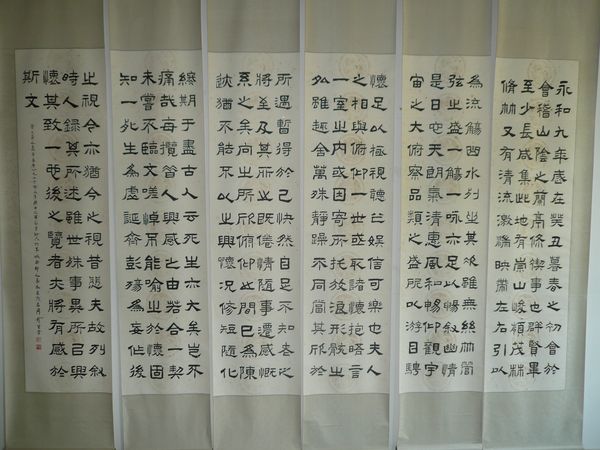 永和九年歲在癸丑暮春之初會於
會稽山陰之蘭亭脩禊事也群賢畢
至少長咸集此地有崇山峻領茂林
脩竹又有清流激湍映帶左右引以
為流觴曲水列坐其次雖無絲竹管
弦之盛一觴一詠亦足以暢敘幽情
是日也天朗氣清惠風和暢仰觀宇
宙之大俯察品類之盛所以游目騁
懷足以極視聽之娛信可樂也夫人
之相與俯仰一世或取諸懷抱晤言
一室之內或因寄所托放浪形骸之
外雖趣舍萬殊靜躁不同當其欣於
所遇暫得於己快然自足不知老之
將至及其所之既倦情隨事遷感慨
系之矣向之所欣俯仰之間已為陳
跡猶不能不以之興懷況修短隨化
終期于盡古人云死生亦大矣豈不
痛哉每攬昔人興感之由若合一契
未嘗不臨文嗟悼不能喻之於懷固
知一死生為虛誕齊彭殤為妄作後
之視今亦猶今之視昔悲夫故列敘
時人錄其所述雖世殊事異所以興
懷其致一也後之覽者亦將有感於
斯文